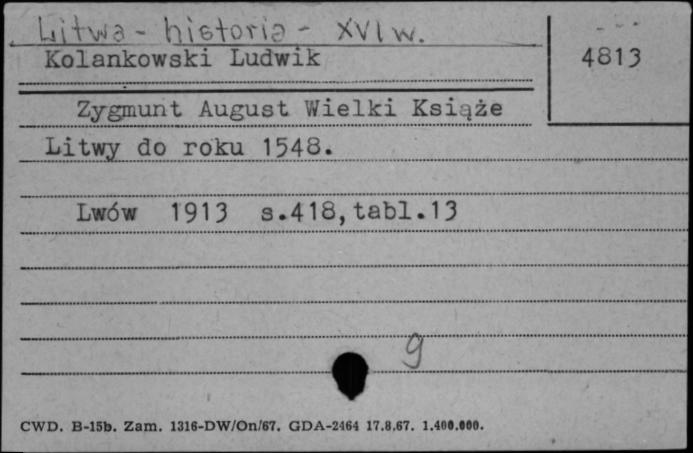 Litwa - historia - XVI w.
Kolankowski Ludwik
4813
Zygmunt August Wielki Książe
Litwy do roku 1548.
Lwów 1913 s.418,tabl.13
9
CWD. B-15b. Zam. 1316-DW/On/67. GDA-2464 17.8.67. 1.400.000.